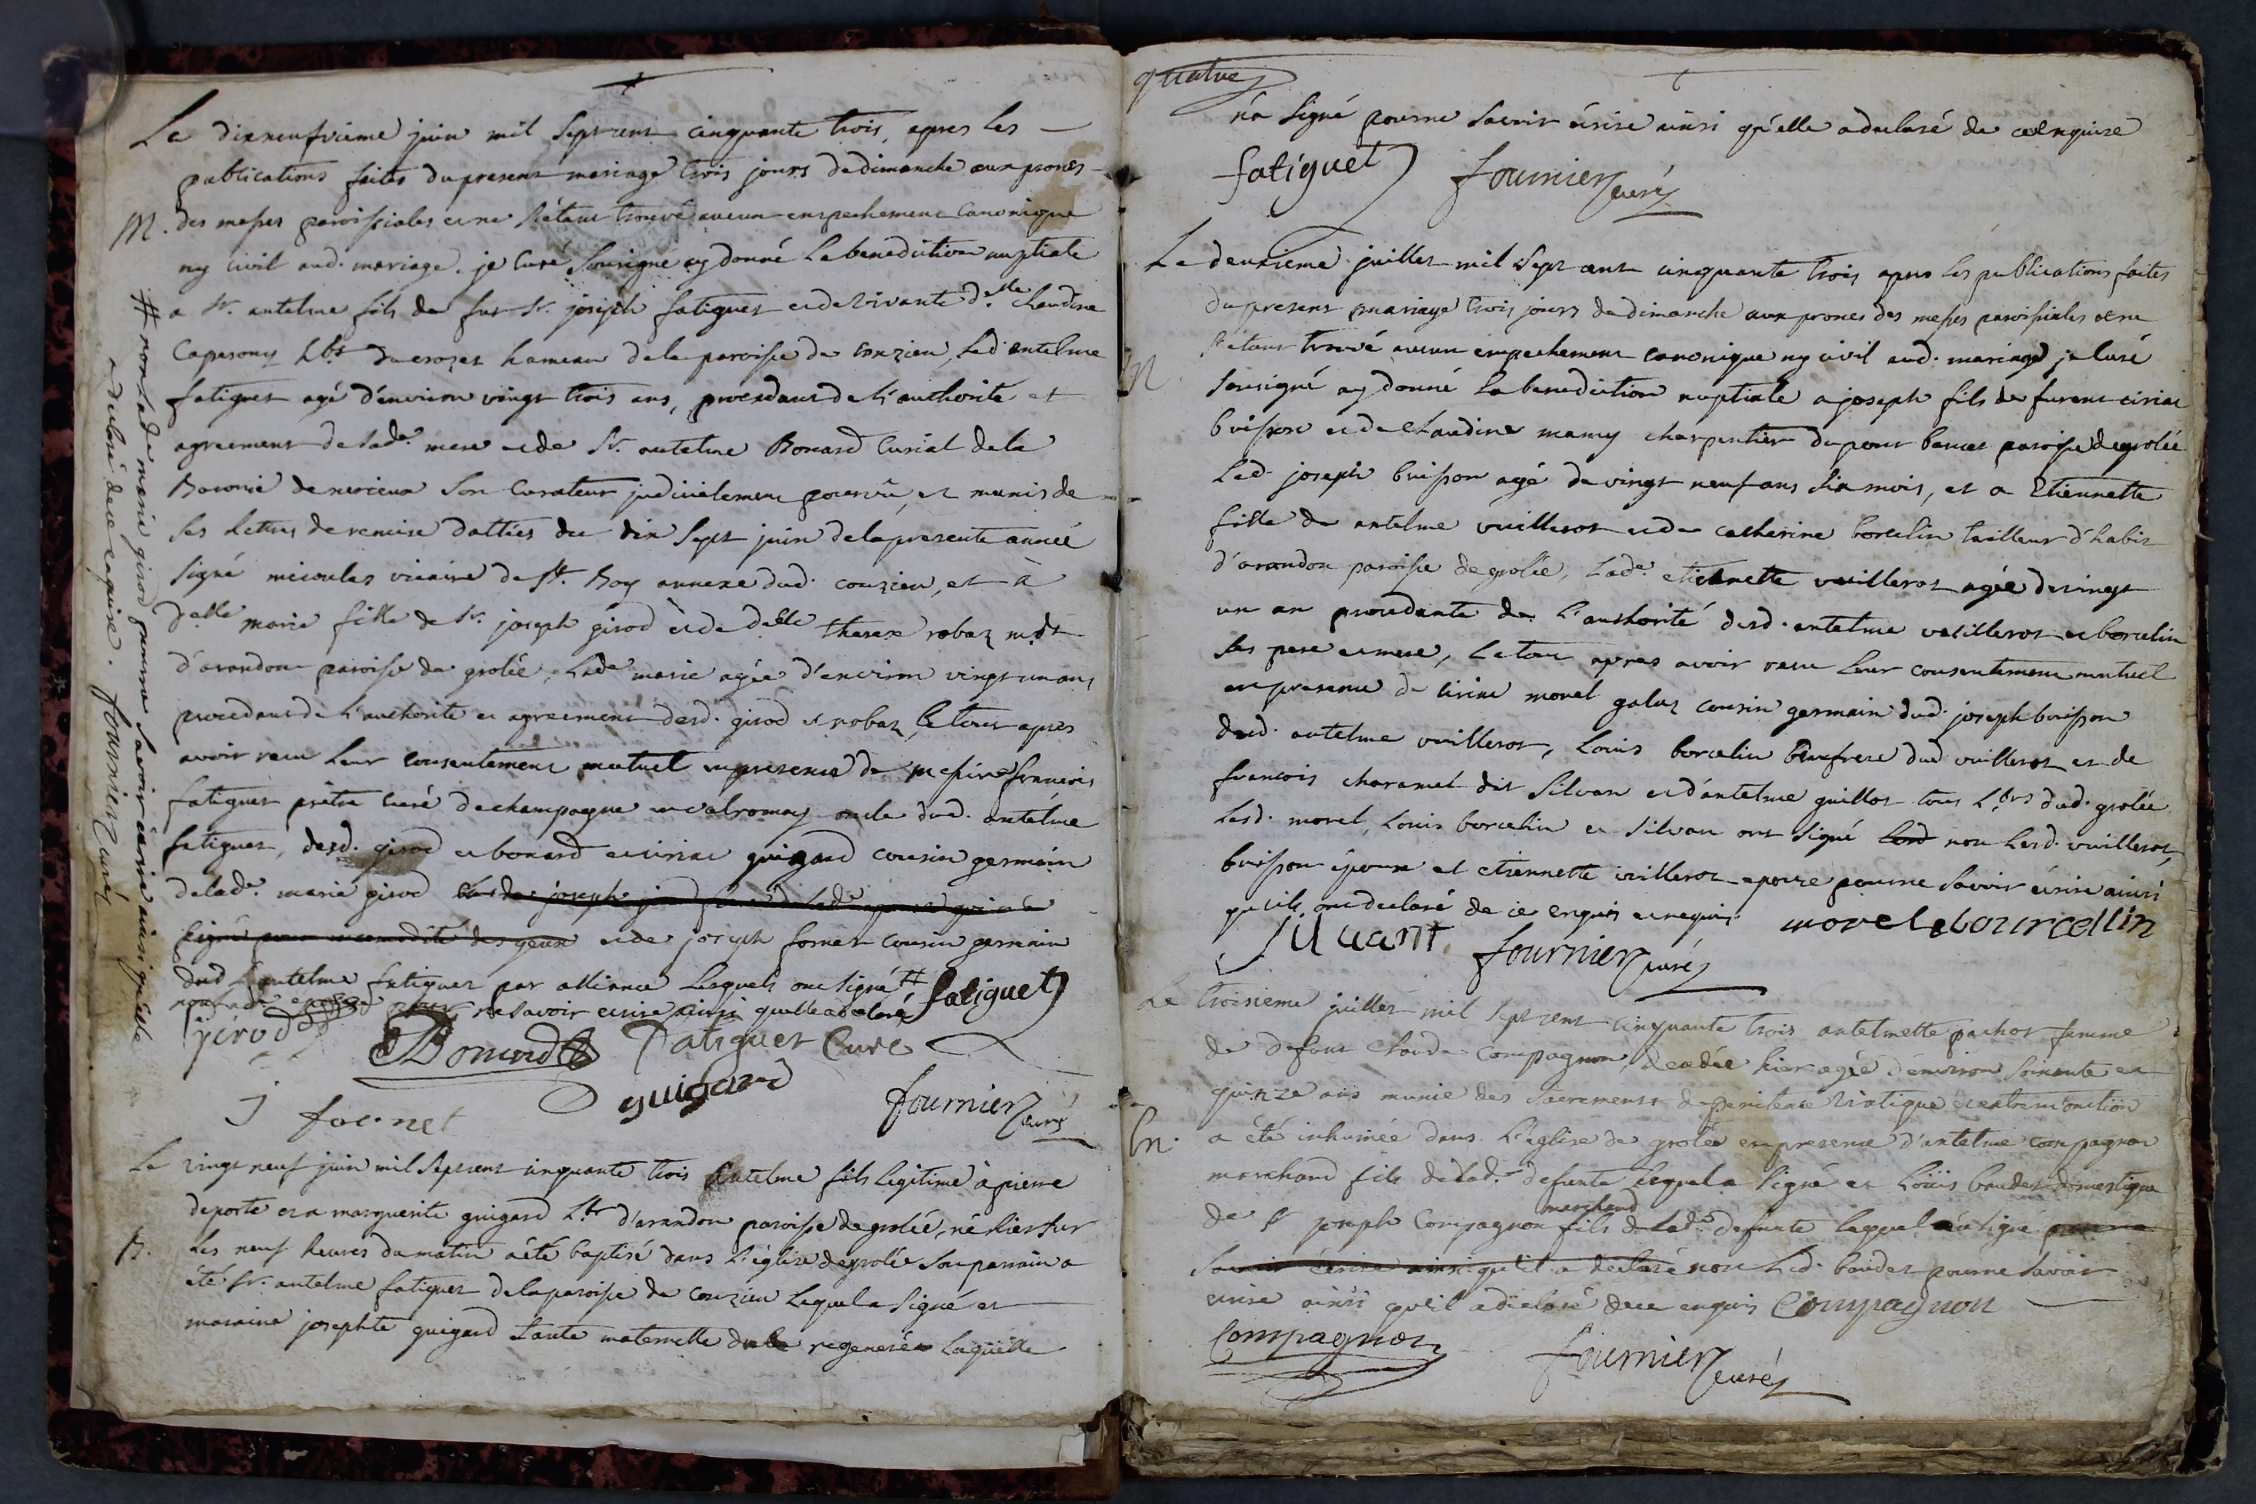 Le dixneufvieme juin mil Sept cent cinquante trois, apres les
publications faites du present mariage trois jours de dimanche aux prones
M. des messes paroissiales et ne s'etant trouvé aucun empechement canonique
ny civil aud. mariage. je Curé Sousigné ay donné La benediction nuptiale
a Sr. antelme fils de fut Sr. joseph fatiguet et de vivante d.lle Claudine
hbt du crozet hameau de la paroisse de conzieu, Led antelme
fatiguet agé d'environ vingt trois ans, procedant de L'authorité et
agreement de Lade. mere et de Sr. antelme Bonard Curial de la
Son Curateur judicielement pourvû, et munis de
Ses Lettres de remise dattées du dix Sept juin de la presente année
Signé vicaire de St. Boy annexe dud. conzieu, et à
Delle marie fille de Sr. joseph girod et de delle therese robaz
d'arandon paroisse de grolée, Lade marie agée d'environ vingt un ans
procedant de L'authorité et agreement desd. girod et robaz, Le tout apres
avoir recu Leur consentement mutuel en presence de messire françois
fatiguet prêtre curé de champagne en valromey oncle dud. antelme
fatiguet, desd. girod et bonard et ciriac guigard cousin germain
de lade. marie girod et de joseph
Signé pour incomodité des yeux et de joseph fornet cousin germain
dud antelme fatiguet par alliance Lesquels ont signé # fatiguet
ne Savoir ecrire ainsi quelle a declaré
girod Bonard fatiguet Curé
guigard
J fornet fournier curé
# non Lade marie girod pour ne Savoir écrire ainsi qu'elle
a declaré de ce enquise. fournier curé
Le vingt neuf juin mil Sept cent cinquante trois antelme fils Legitime à pierre
deporte et a marguerite guigard hbt d'arandon paroisse de grolée, né hier sur
B. Les neuf heures du matin a été baptisé dans L'église de grolée Son parrain a
été Sr. antelme fatiguet de la paroisse de conzieu Lequel a Signé et
maraine josephte guigard tante maternelle du regeneré Laquelle
quatre
n'a Signé pour ne Savoir écrire ainsi qu'elle a declaré de ce enquise
fatiguet fournier curé
Le deuxieme juillet mil Sept cent cinquante trois apres Les publications faites
du present mariage trois jours de dimanche aux prones des messes paroissiales et ne
S'etant trouvé aucun empechement canonique ny civil aud. mariage, je Curé
M. Sousigné ay donné La benediction nuptiale a joseph fils de furent ciriac
buisson et de Claudine mamy charpentier du pour bancet paroisse de grolée
Led. joseph buisson agé de vingt neuf ans Six mois, et a Etiennette
fille de antelme vuillerot et de catherine borcelin tailleur d'habit
d'arandon paroisse de grolée, Lade. etiennette vuillerot agée de vingt
un an procedante de L'authorité desd. antelme vuillerot et borcelin
Ses pere et mere, Le tout apres avoir recu Leur consentement mutuel
en presence de ciriac morel galaz cousin germain dud. joseph buisson
dud. antelme vuillerot, Louis borcelin beaufrere dud vuillerot et de
françois charamel dit Silvan et d'antelme guillot tous hbts dud. grolée
Lesd. morel, Louis borcelin et Silvan ont Signé Led non Lesd. vuillerot,
buisson époux et etiennette vuillerot epouse pour ne Savoir écrire ainsi
qu'ils ont declaré de ce enquis et requis morel Lbourcellin
Siluant fournier curé
Le troisieme juillet mil Sept cent cinquante trois antelmette pachot femme
de defunt Claude Compagnon, decedée hier agée d'environ Soixante et
quinze ans munie des Sacrements de penitence viatique et extremonction
En. a été inhumée dans L'eglise de grolée en presence d'antelme compagnon
marchand fils de Lade. defunte Lequel a Signé et Loüis baudet domestique
marchand
de Sr joseph Compagnon fils de Lade. defunte Lequel a signé pour ne
Savoir écrire ainsi qu'il a declaré non Led. baudet pour ne Savoir
ecrire ainsi qu'il a declaré de ce enquis Compagnon
Compagnon fournier curé